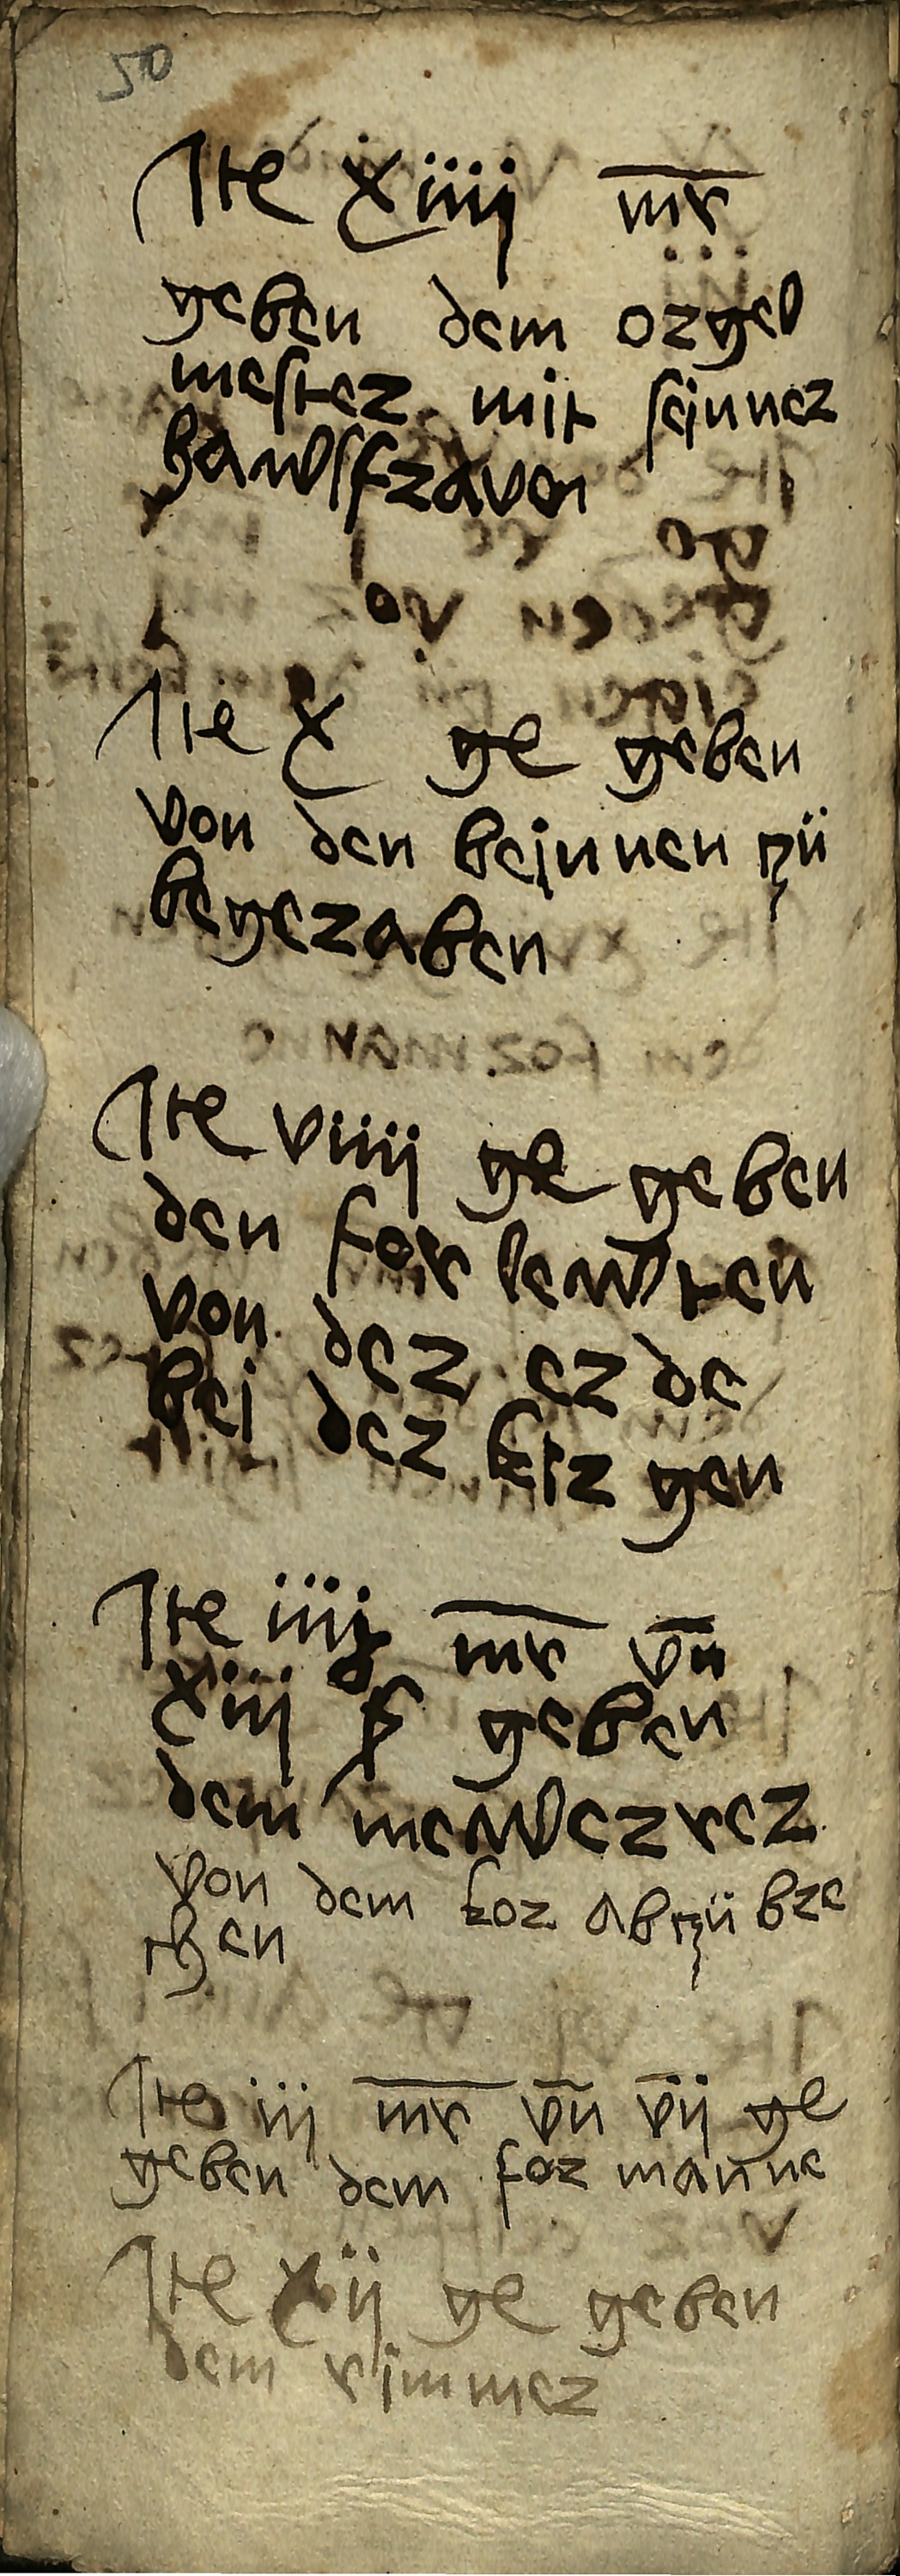 50
Ite xiiij mr
geben dem orgel
mester mit seinner
hawsfraven
Ite x ge geben
von den beinnen zü
begeraben
Ite viiij ge geben
den for lewten
von der er de
bei der kir gen
Ite iiij mr vn
xiij ꝑ geben
dem mewerrer
von dem kor ab zü bre
chen
Ite iij mr vn vij ge
geben dem for manne
Ite xij ge geben
dem rimmer